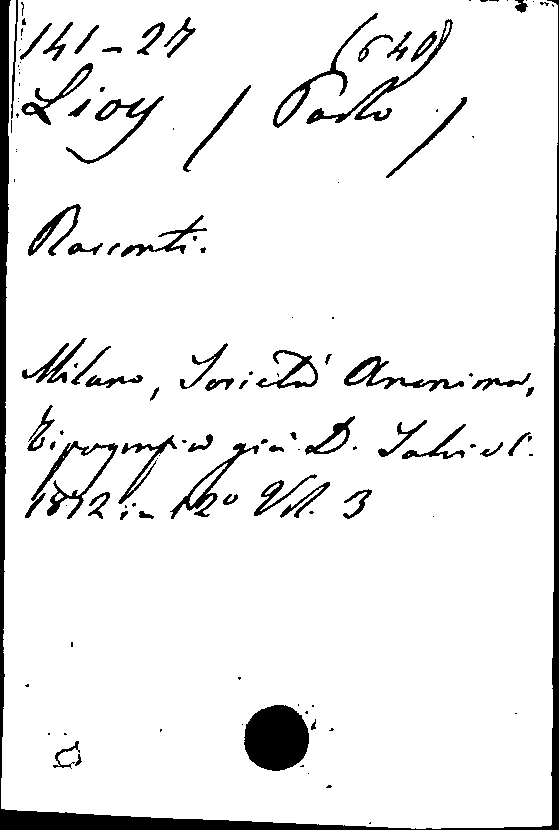 141-27 (640)
Lioy (Paolo)
Racconti.
Milano, Società Anonima,
Tipografia già D. Salvi e C.
1872 in 12° Vol. 3